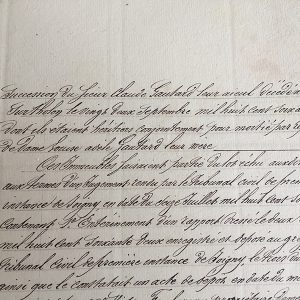 Succession du Sieur Claude Gautard leur aieul décédé à
sur tholon le vingt deux Septembre mil huit cent soixan
dont ils étaient héritiers conjointement pour moitié par
de Dame Louise adèle Gautard leur mère
Ces Immeubles faisaient partie du lot échu auxdits
aux termes d'un Jugement rendu par le Tribunal Civil de pre
instance de Joigny en date du onze Juillet mil huit cent soi
Contenant Enterinement d'un rapport dressé le deux
mil huit cent soixante deux enregistré et déposé au gre
Tribunal Civil de première instance de Joigny le trois
ainsi que le constatait un acte de dépôt en date du m